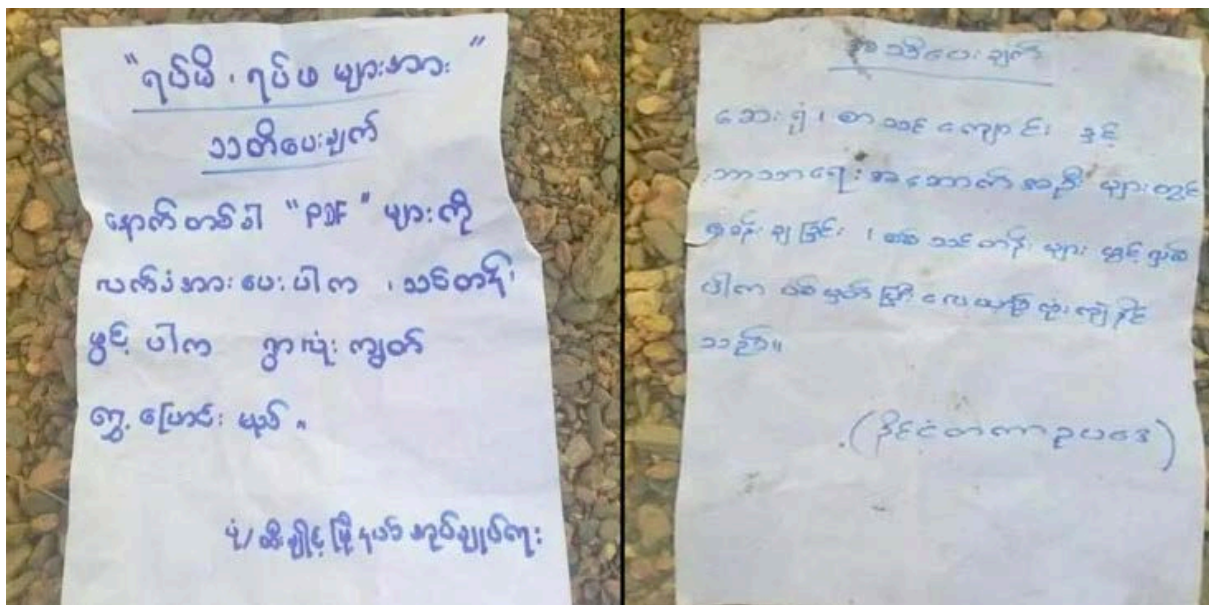 "ရပ်မိ၊ ရပ်ဖ များအား"
သတိပေးချက်
နောက်တစ်ခါ "PDF" များကို
လက်ခံအားပေးပါက ၊ သင်တန်း
ဖွင့် ပါက ရွာလုံးကျွတ်
ရွှေ့ပြောင်း မည် ။
ပုံ/ဆီးမျို့ မြို့နယ်အုပ်ချုပ်ရေး
အသိပေးချက်
ဆေးရုံ၊ စာသင်ကျောင်း နှင့်
ဘာသာရေးအဆောက်အဦး များတွင်
စခန်းချခြင်း ၊ စစ်သင်တန်း များ ဖွင့်
ပါက ပစ်မှတ်ပြု လေယာဉ်ဗုံးကြဲနိုင်
သည်။
(နိုင်ငံတကာဥပဒေ)